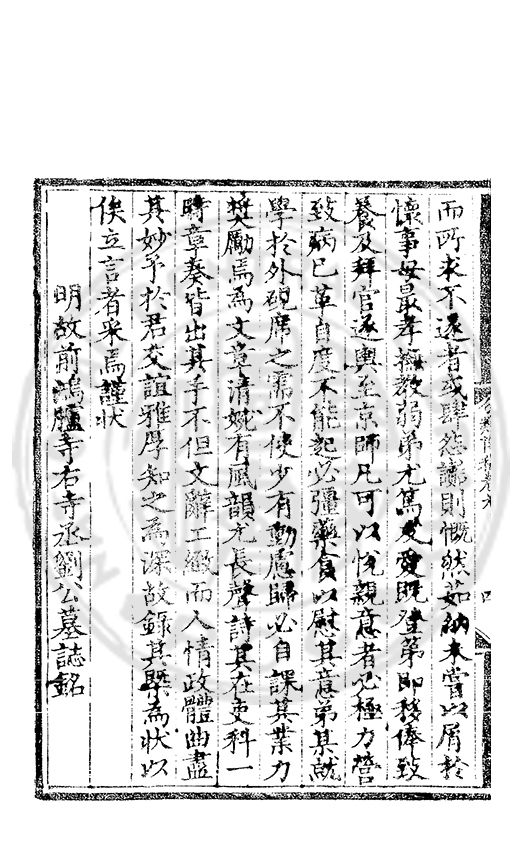 而所求不遂者或肆怨讟則慨然茹納未嘗以屑於
懷事母最孝撫教弱弟尤篤友愛既登第即移俸致
養及拜官遂輿至京師凡可以悅親意者必極力營
致病已革自度不能起必彊藥食以慰其意弟某就
學於外硯席之需不使少有動慮歸必自課其業力
奬勵焉為文章清婉有風韻尤長聲詩其在吏科一
時章奏皆出其手不但文辭工緻而人情政體曲盡
其妙予於君交誼雅厚知之為深故錄其槩為狀以
俟立言者采焉謹狀
明故前鴻臚寺右寺丞劉公墓誌銘